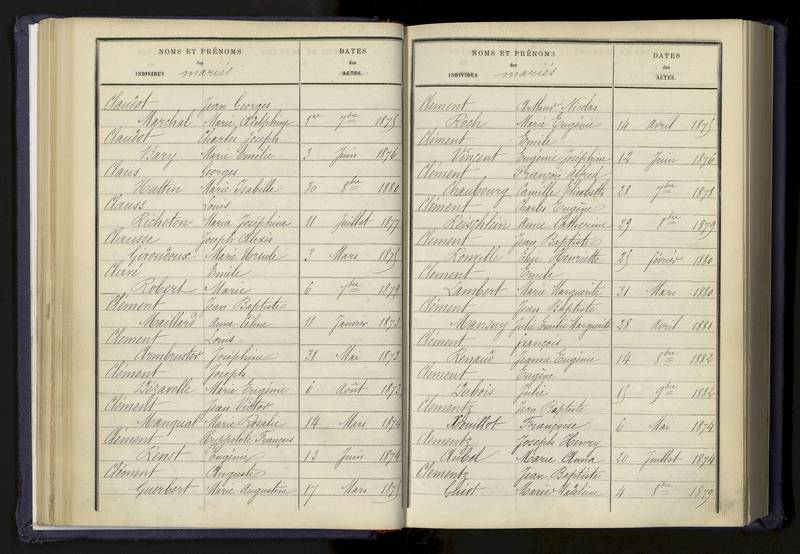 NOMS ET PRÉNOMS
des
INDIVIDUS mariés
DATES
des
ACTES.
Claudot Jean Georges
Marchal Marie Delphine 1er 7bre 1875
Claudot Charles Joseph
Bary Marie Emélie 3 Juin 1876
Claus Georges
Huttin Marie Isabelle 30 8bre 1880
Clauss Louis
Richeton Maria Joséphine 11 Juillet 1877
Clausse Joseph Alexis
Giroudoux Marie Ursule 3 Mars 1875
Clavé Emile
Robert Marie 6 7bre 1879
Clément Jean Baptiste
Maillard Anne Céline 11 Janvier 1873
Clement Louis
Armbrustor Joséphine 31 Mai 1873
Clément Joseph
Dézavelle Marie Eugénie 6 Août 1873
Clément Jean Victor
Manguat Marie Rosalie 14 Mars 1874
Clément Hyppolite François
Renet Eugénie 13 Juin 1874
Clément Auguste
Guerbert Marie Augustine 17 Mars 1875
NOMS ET PRÉNOMS
des
INDIVIDUS mariés
DATES
des
ACTES.
Clement Arthur Nicolas
Roch Marie Eugénie 14 avril 1875
Clément Emile
Vincent Eugénie Joséphine 12 Juin 1876
Clément François Alfred
Chaubourg Camille Elisabeth 28 7bre 1878
Clément Charles Eugène
Reischlin Anne Catherine 29 8bre 1879
Clement Jean Baptiste
Ronville Elise Henriette 25 février 1880
Clément Emile
Lambert Marie Marguerite 31 Mars 1880
Clément Jean Baptiste
Mansuy Julie Emilie Marguerite 28 avril 1881
Clément françois
Renaud Jeanne Eugénie 14 8bre 1882
Clement Eugène
Dubois Julie 15 9bre 1882
Clementz Jean Baptiste
Françoise 6 Mai 1874
Clementz Joseph Henry
Aubel Marie Anna 20 Juillet 1874
Clementz Jean Baptiste
Ghiot Marie Madeleine 4 8bre 1879